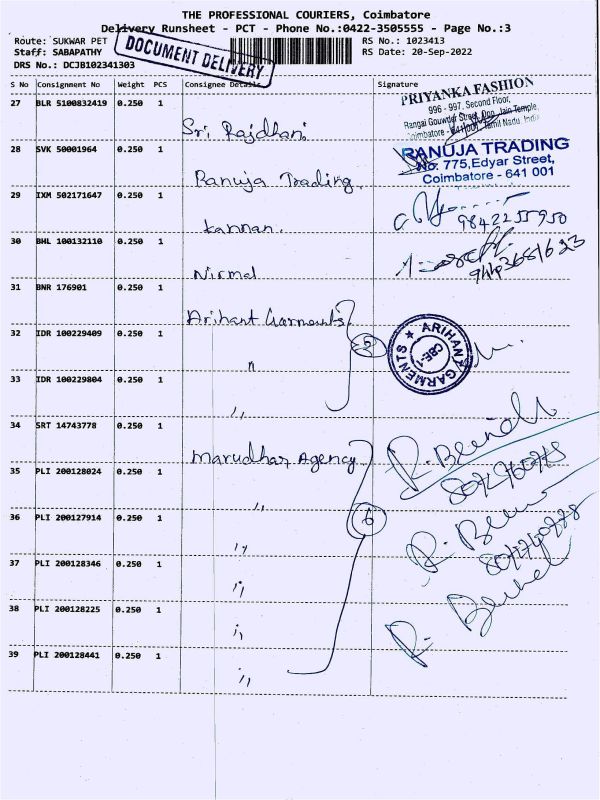 THE PROFESSIONAL COURIERS, Coimbatore
Delivery Runsheet - PCT - Phone No.:0422-3505555 - Page No.:3
Route: SUKWAR PET
RS No.: 1023413
Staff: SABAPATHY
RS Date: 20-Sep-2022
DRS No.: DCJB102341303
DOCUMENT DELIVERY
S No Consignment No Weight PCS Consignee Details Signature
27 BLR 5100832419 0.250 1
Sri Rajdhani
PRIYANKA FASHION
996 - 997, Second Floor,
Rangai Gouwder Street, Opp. Jain Temple,
Coimbatore - Tamil Nadu, India
28 SVK 50001964 0.250 1
Ranuja Trading
RANUJA TRADING
No. 775, Edyar Street,
Coimbatore - 641 001
29 IXM 502171647 0.250 1
Kannan.
9842255950
30 BHL 100132110 0.250 1
Nirmal
9443681623
31 BNR 176901 0.250 1
Arihant Garments
32 IDR 100229409 0.250 1
"
5
ARIHANT GARMENTS ★
CBE-1
33 IDR 100229804 0.250 1
,,
34 SRT 14743778 0.250 1
Marudhar Agency
35 PLI 200128024 0.250 1
,,
36 PLI 200127914 0.250 1
,,
6
37 PLI 200128346 0.250 1
,,
38 PLI 200128225 0.250 1
,,
39 PLI 200128441 0.250 1
,,